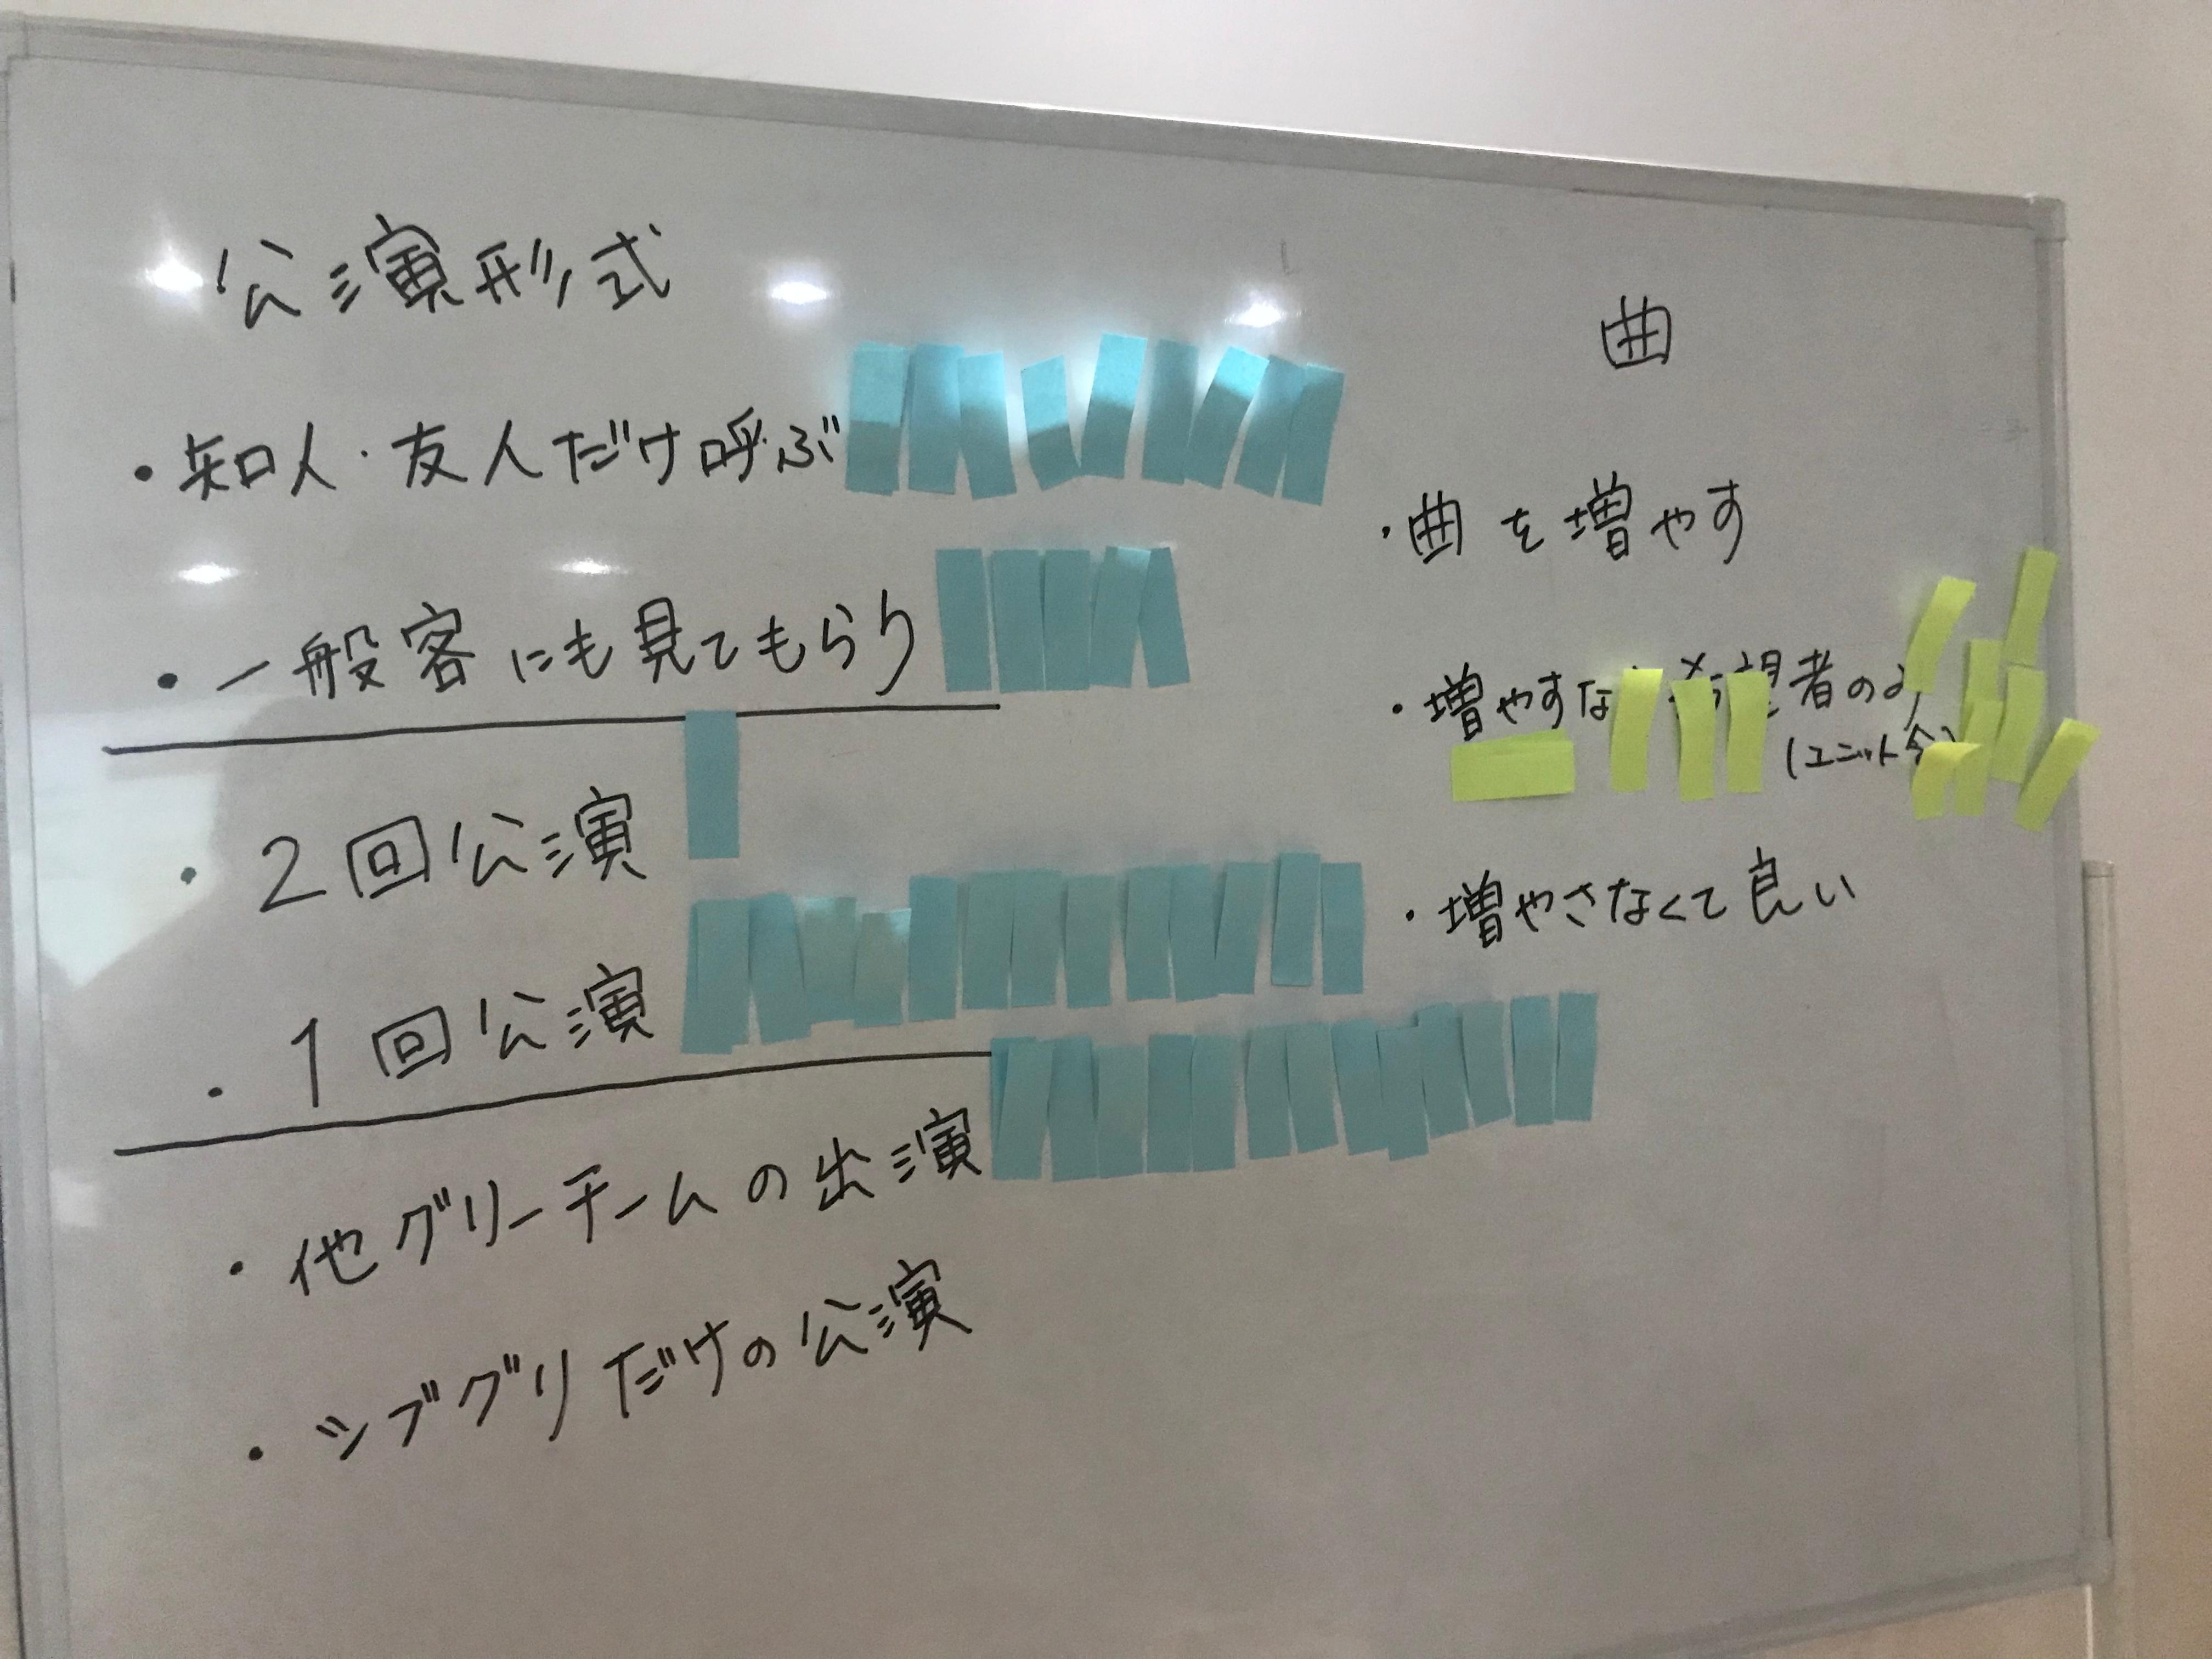 公演形式
・知人・友人だけ呼ぶ
・一般客にも見てもらう
・2回公演
・1回公演
・他グリーチームの出演
・シブグリだけの公演
曲
・曲を増やす
・増やすな 希望者のみ
(ユニット含)
・増やさなくて良い